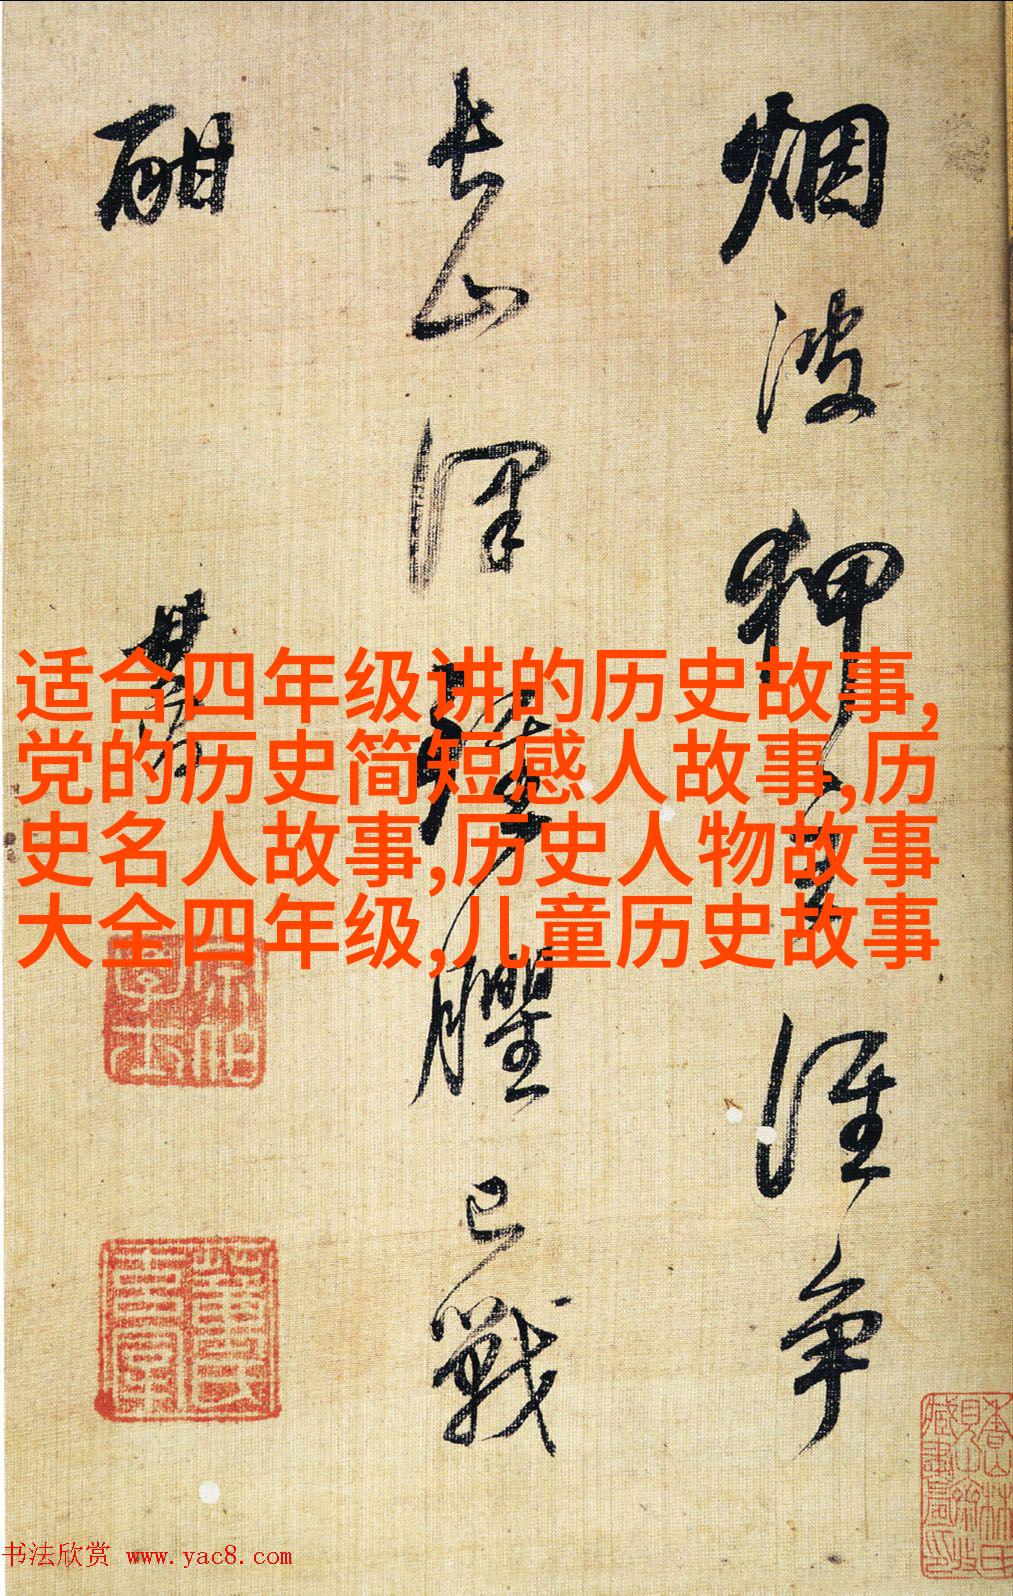 烟波狎主誰争
長山澤臞已戰
酣
其昌
宗伯學士
适合四年级讲的历史故事,
党的历史简短感人故事,历
史名人故事,历史人物故事
大全四年级,儿童历史故事
书法欣赏 www.yac8.com